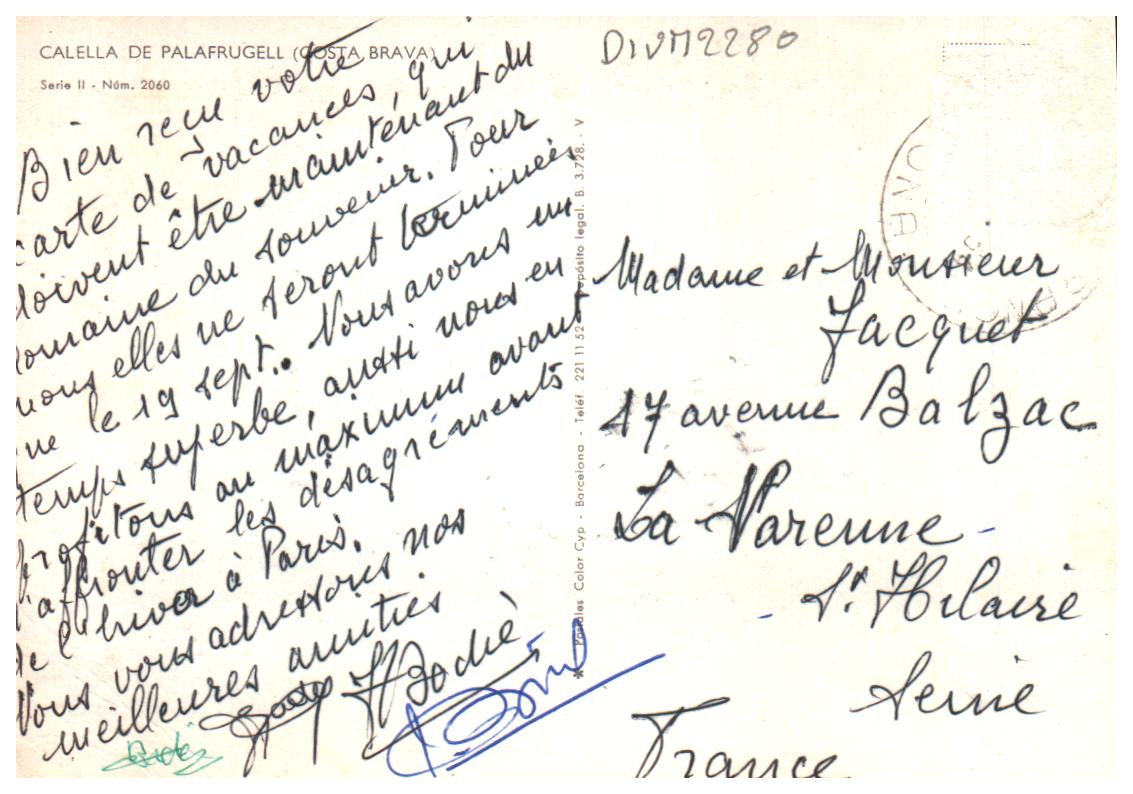 CALELLA DE PALAFRUGELL (COSTA BRAVA)
Serie II - Núm. 2060
Bien reçu votre
carte de vacances, qui
doivent être maintenant du
domaine du souvenir. Pour
nous elles ne seront terminées
que le 19 sept. Nous avons un
temps superbe, aussi nous en
profitons au maximum avant
d'affronter les désagréments
de l'hiver à Paris.
Nous vous adressons nos
meilleures amitiés.
Postales Color Cyp - Barcelona - Teléf. 221 11 52 Depósito legal. B. 3.728. - V
DIVM2280
Madame et Monsieur
Jacquet
17 avenue Balzac
La Varenne -
- St Hilaire
Seine
France